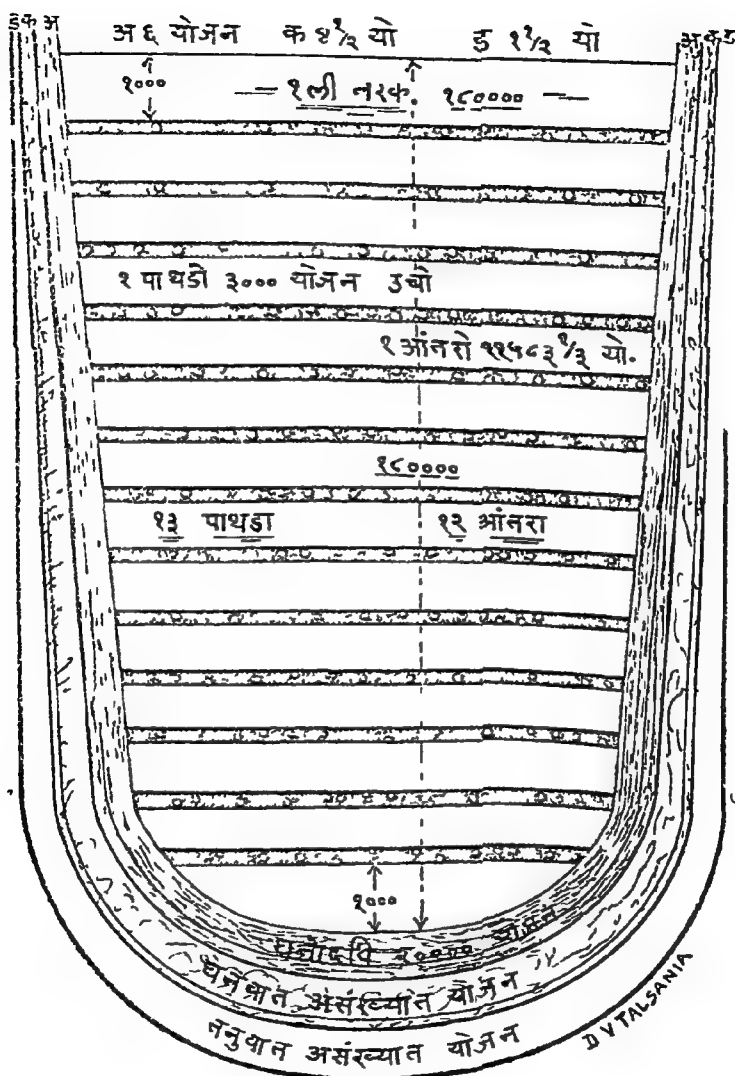 ड क अ
अ ६ योजन क ४१/२ यो ड ११/२ यो
अ क ड
१०००
१ली नरक. १८००००
१ पाथडो ३००० योजन उचो
१ आंतरो ११५८३१/३ यो.
१८००००
१३ पाथडा
१२ आंतरा
१०००
घनोदधि २०००० योजन
घनवात असंख्यात योजन
तनुवात असंख्यात योजन
D V TALSANIA